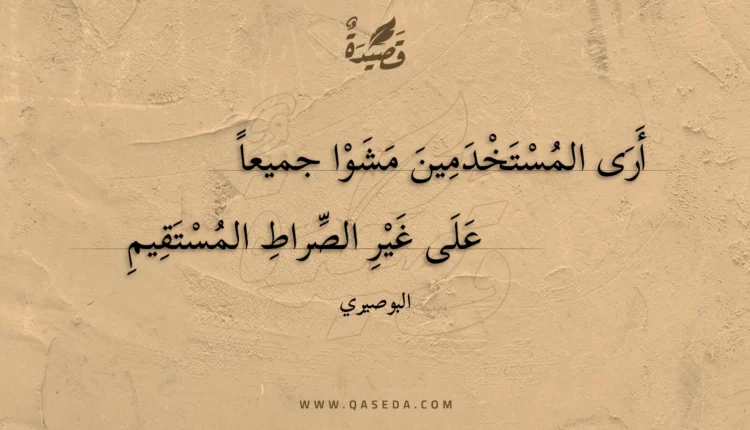 قَصِيْدَةٌ
أَرَى المُسْتَخْدَمِينَ مَشَوْا جميعاً
عَلَى غَيْرِ الصِّراطِ المُسْتَقِيمِ
البوصيري
WWW.QASEDA.COM